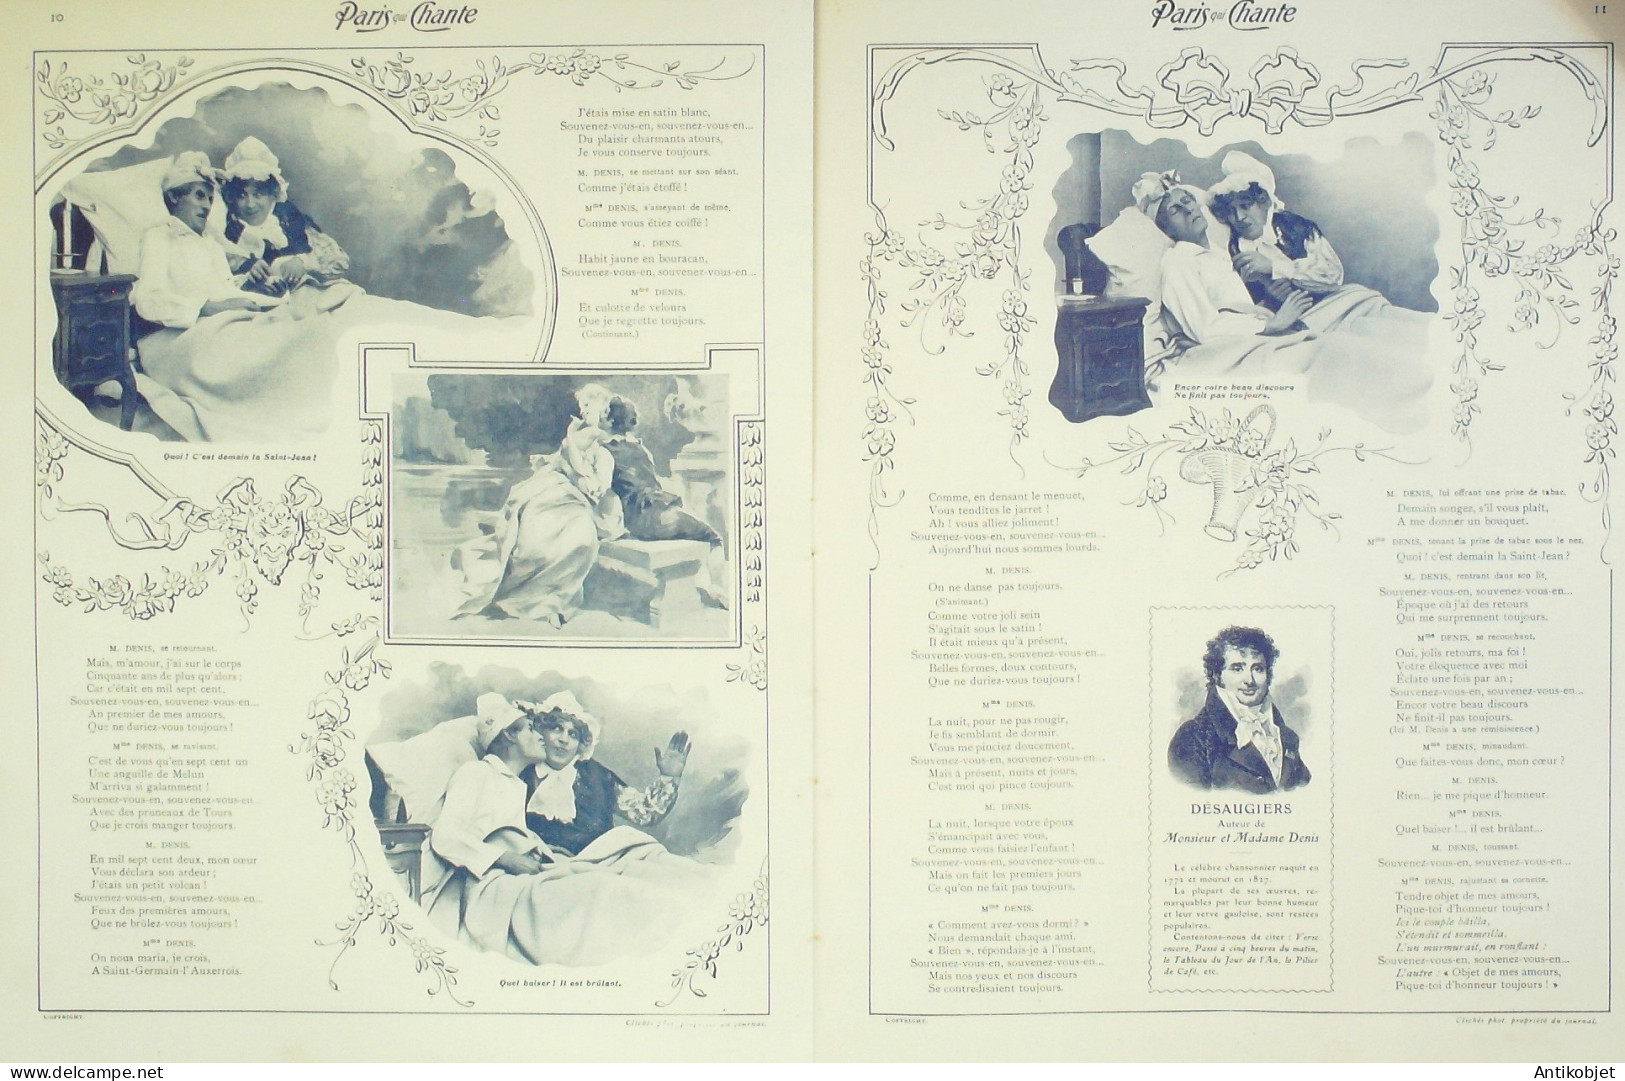 10
Paris qui Chante
J'étais mise en satin blanc,
Souvenez-vous-en, souvenez-vous-en...
Du plaisir charmants atours,
Je vous conserve toujours.
M. DENIS, se mettant sur son séant.
Comme j'étais étoffé !
Mme DENIS, s'asseyant de même,
Comme vous étiez coiffé !
M. DENIS.
Habit jaune en bouracan,
Souvenez-vous-en, souvenez-vous-en...
Mme DENIS.
Et culotte de velours
Que je regrette toujours.
(Continuant.)
Quoi ! C'est demain la Saint-Jean !
M. DENIS, se retournant.
Mais, m'amour, j'ai sur le corps
Cinquante ans de plus qu'alors ;
Car c'était en mil sept cent,
Souvenez-vous-en, souvenez-vous-en...
An premier de mes amours,
Que ne duriez-vous toujours !
Mme DENIS, se ravisant.
C'est de vous qu'en sept cent un
Une anguille de Melun
M'arriva si galamment !
Souvenez-vous-en, souvenez-vous-en...
Avec des pruneaux de Tours
Que je crois manger toujours.
M. DENIS.
En mil sept cent deux, mon cœur
Vous déclara son ardeur ;
J'étais un petit volcan !
Souvenez-vous-en, souvenez-vous-en...
Feux des premières amours,
Que ne brûlez-vous toujours !
Mme DENIS.
On nous maria, je crois,
A Saint-Germain-l'Auxerrois.
Quel baiser ! Il est brûlant.
COPYRIGHT.
Clichés phot. propriété du journal.
Paris qui Chante
11
Encor votre beau discours
Ne finit pas toujours.
Comme, en densant le menuet,
Vous tendîtes le jarret !
Ah ! vous alliez joliment !
Souvenez-vous-en, souvenez-vous-en...
Aujourd'hui nous sommes lourds.
M. DENIS.
On ne danse pas toujours.
(S'animant.)
Comme votre joli sein
S'agitait sous le satin !
Il était mieux qu'à présent,
Souvenez-vous-en, souvenez-vous-en...
Belles formes, doux contours,
Que ne duriez-vous toujours !
Mme DENIS.
La nuit, pour ne pas rougir,
Je fis semblant de dormir.
Vous me pinciez doucement,
Souvenez-vous-en, souvenez-vous-en...
Mais à présent, nuits et jours,
C'est moi qui pince toujours.
M. DENIS.
La nuit, lorsque votre époux
S'émancipait avec vous,
Comme vous faisiez l'enfant !
Souvenez-vous-en, souvenez-vous-en...
Mais on fait les premiers jours
Ce qu'on ne fait pas toujours.
Mme DENIS.
« Comment avez-vous dormi ? »
Nous demandait chaque ami.
« Bien », répondais-je à l'instant,
Souvenez-vous-en, souvenez-vous-en...
Mais nos yeux et nos discours
Se contredisaient toujours.
DÉSAUGIERS
Auteur de
Monsieur et Madame Denis
Le célèbre chansonnier naquit en
1772 et mourut en 1827.
La plupart de ses œuvres, re-
marquables par leur bonne humeur
et leur verve gauloise, sont restées
populaires.
Contentons-nous de citer : Verse
encore, Passé à cinq heures du matin,
le Tableau du Jour de l'An, le Pilier
de Café, etc.
M. DENIS, lui offrant une prise de tabac.
Demain songez, s'il vous plaît,
A me donner un bouquet.
Mme DENIS, tenant la prise de tabac sous le nez.
Quoi ! c'est demain la Saint-Jean ?
M. DENIS, rentrant dans son lit,
Souvenez-vous-en, souvenez-vous-en...
Époque où j'ai des retours
Qui me surprennent toujours.
Mme DENIS, se recouchant.
Oui, jolis retours, ma foi !
Votre éloquence avec moi
Éclate une fois par an ;
Souvenez-vous-en, souvenez-vous-en...
Encor votre beau discours
Ne finit-il pas toujours.
(Ici M. Denis a une réminiscence.)
Mme DENIS, minaudant.
Que faites-vous donc, mon cœur ?
M. DENIS.
Rien... je me pique d'honneur.
Mme DENIS.
Quel baiser !... il est brûlant...
M. DENIS, toussant.
Souvenez-vous-en, souvenez-vous-en...
Mme DENIS, rajustant sa cornette.
Tendre objet de mes amours,
Pique-toi d'honneur toujours !
Ici le couple bâilla,
S'étendit et sommeilla.
L'un murmurait, en ronflant :
Souvenez-vous-en, souvenez-vous-en...
L'autre : « Objet de mes amours,
Pique-toi d'honneur toujours ! »
COPYRIGHT.
Clichés phot. propriété du journal.
Antikobjet